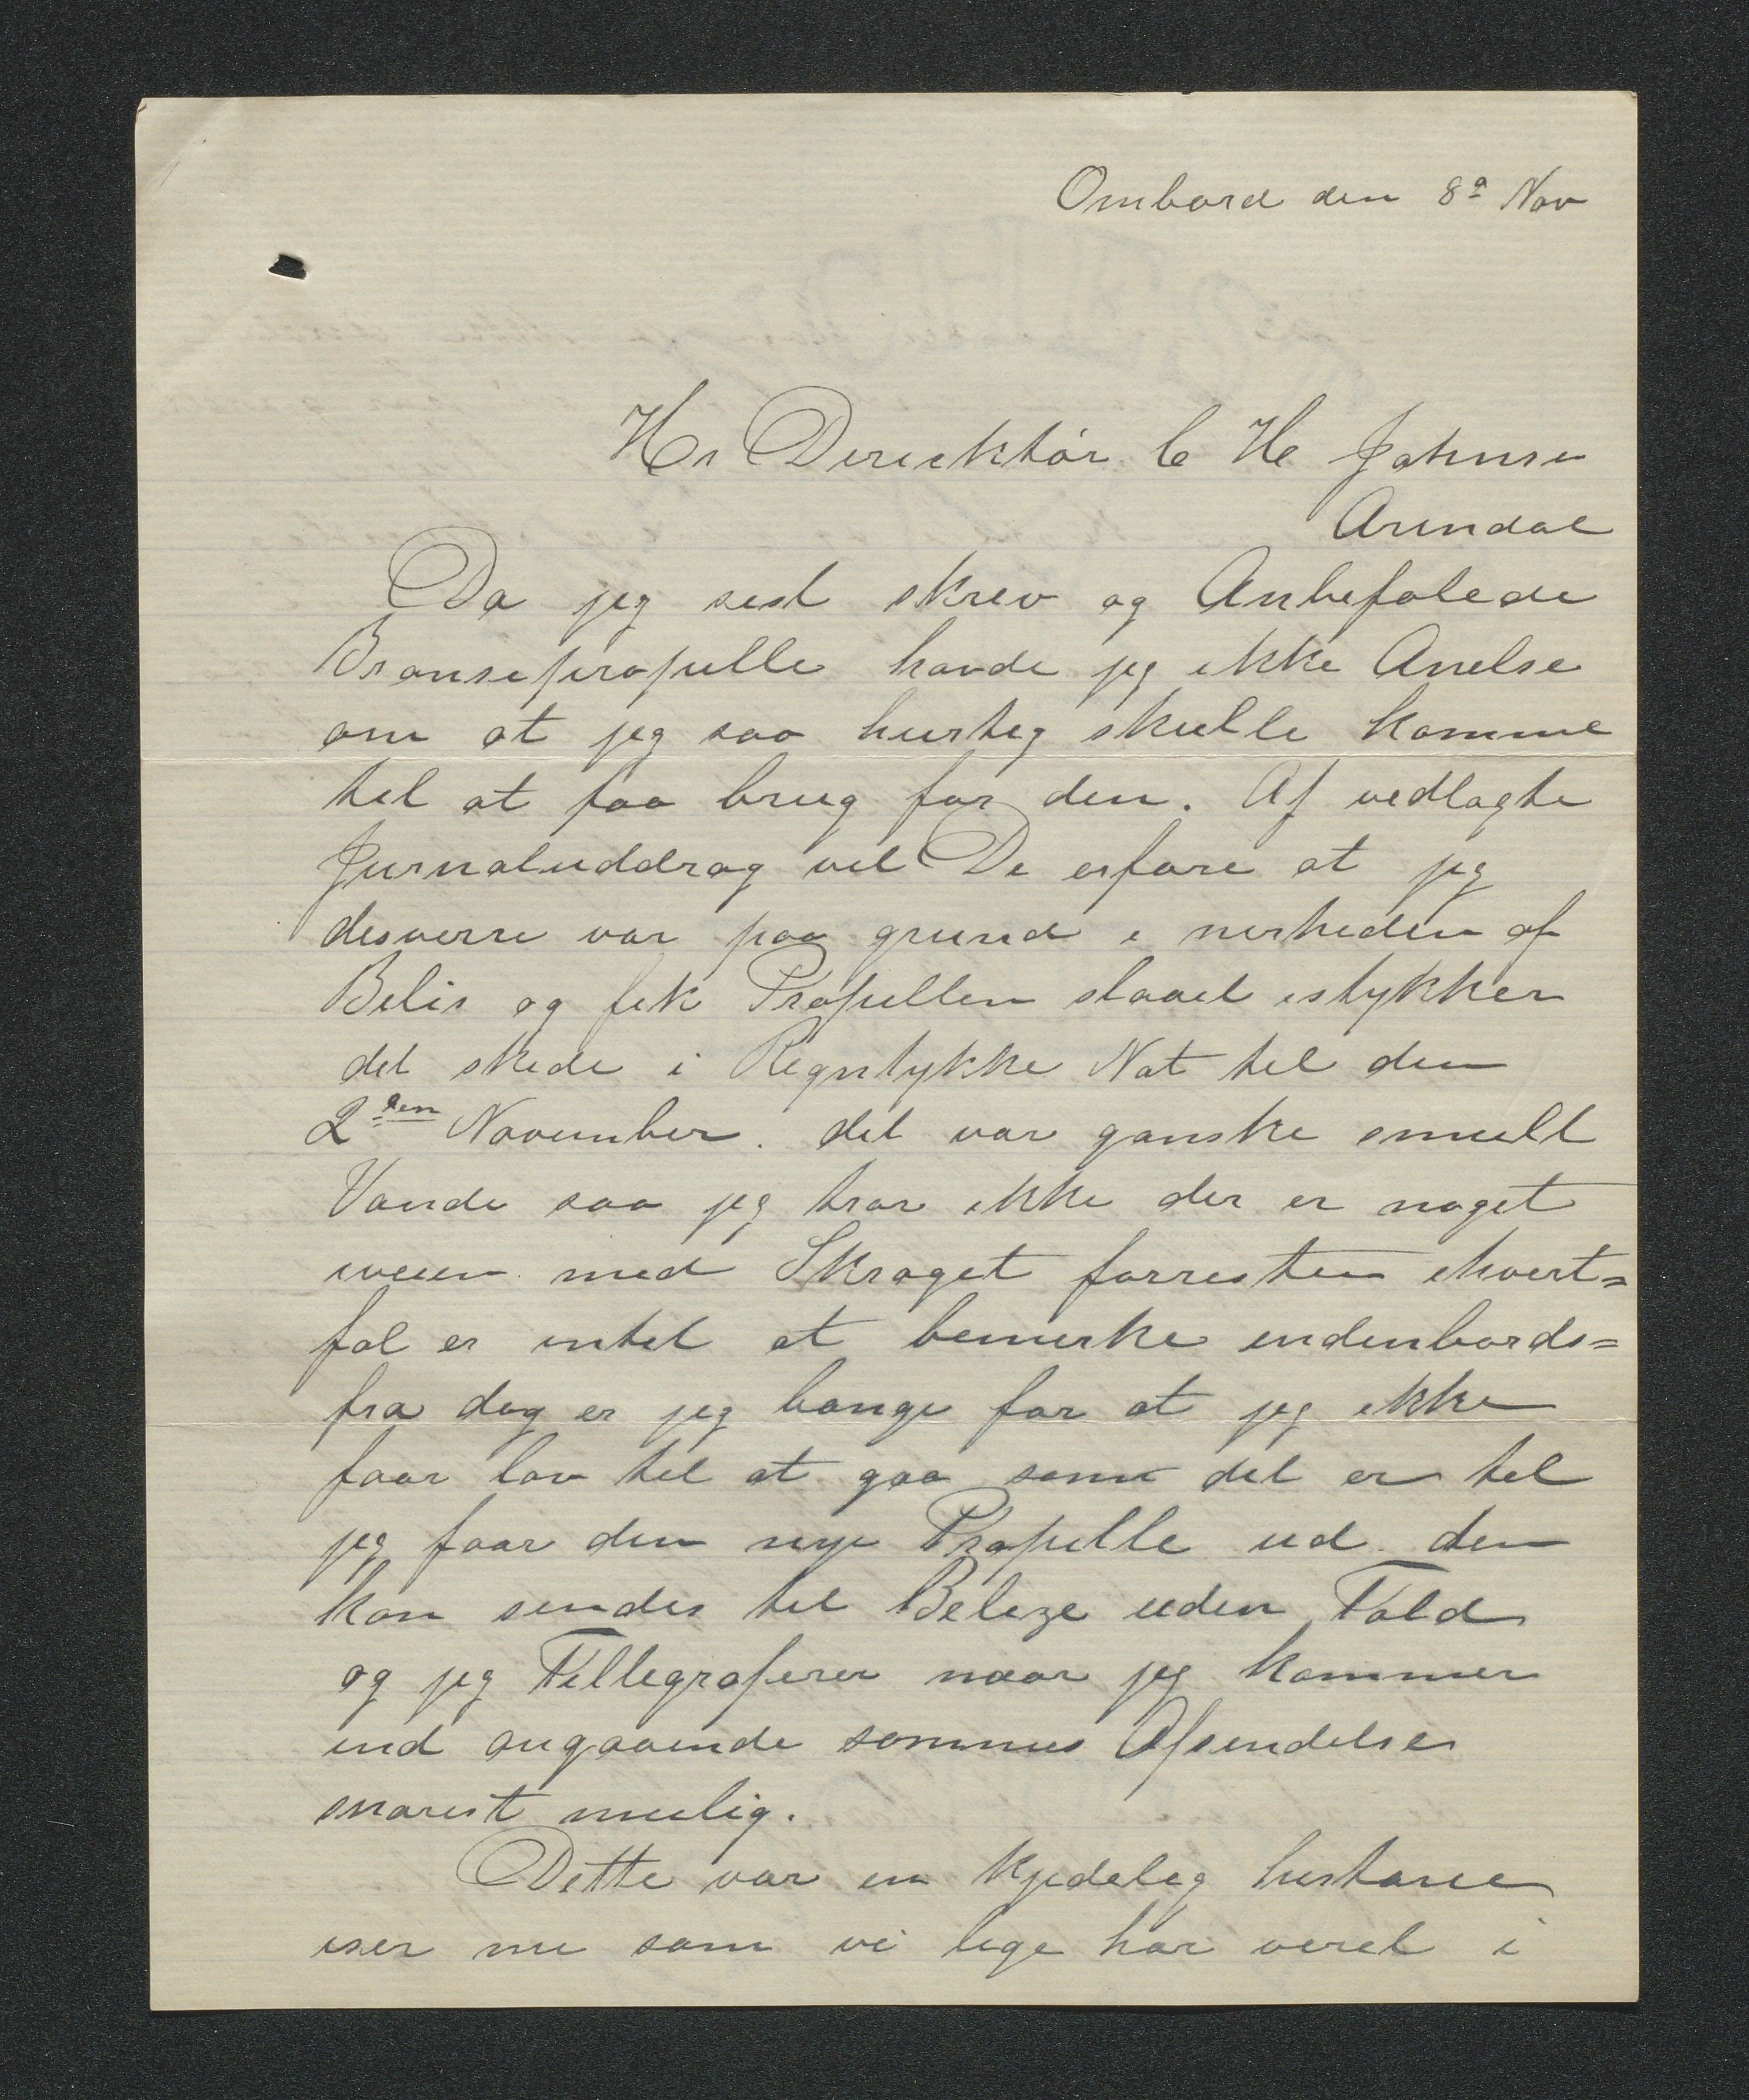 Ombord den 8ª Nov
Hr Direcktör C H Johnsen
Arendal
Da jeg sest skrev og Anbefalede
Bronsepropelle havde jeg ikke Anelse
om at jeg saa hurtig skulle komme
til at faa brug for den. Af vedlagte
Jurnaluddrag vil De erfare at jeg
desverre var paa grund i nerheden af
Belis og fik Propellen slaaet istykker
det skede i Regntykke Nat til den
2den November. det var ganske smult
Vande saa jeg tror ikke der er noget
iveien med Skroget forresten ihvert=
fal er intet at bemerke indenbords=
fra dog er jeg bange for at jeg ikke
faar lov til at gaa som det er til
jeg faar den nye Propelle ud. den
kan sendes til Belize uden Told
og jeg Tellegraferer naar jeg kommer
ind angaaende sammes Afsendelse
snarest mulig.
Dette var en kjedelig histarie
iser nu som vi lige har veret i